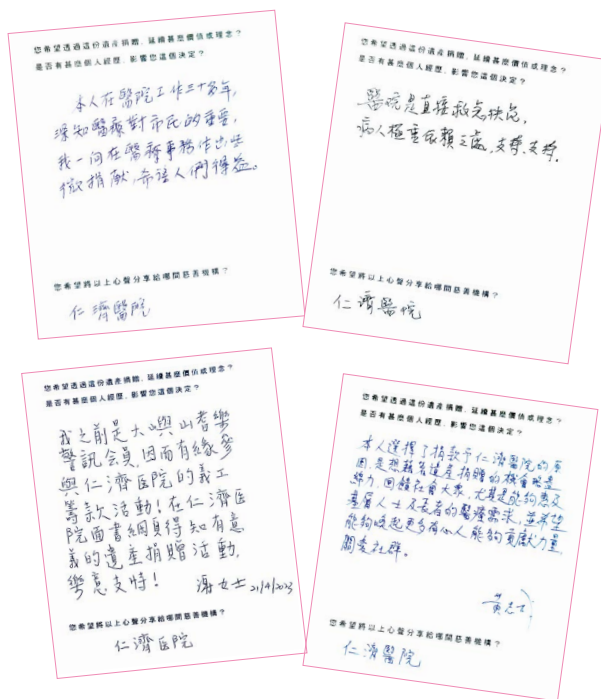 您希望透過這份遺產捐贈，延續甚麼價值或理念？
是否有甚麼個人經歷，影響您這個決定？
本人在醫院工作三十多年，
深知醫療對市民的重要，
我一向在醫療事務作出些
微捐獻，希望人們得益。
您希望將以上心聲分享給哪間慈善機構？
仁濟醫院
您希望透過這份遺產捐贈，延續甚麼價值或理念？
是否有甚麼個人經歷，影響您這個決定？
醫院是直接救急扶危，
病人極重依賴之處，支持，支持。
您希望將以上心聲分享給哪間慈善機構？
仁濟醫院
您希望透過這份遺產捐贈，延續甚麼價值或理念？
是否有甚麼個人經歷，影響您這個決定？
我之前是大嶼山耆樂
警訊会員，因而有緣參
與仁濟医院的義工
籌款活動！在仁濟医
院面書網頁得知有意
義的遺產捐贈活動，
樂意支持！ 女士 21/4/2023
您希望將以上心聲分享給哪間慈善機構？
仁濟医院
您希望透過這份遺產捐贈，延續甚麼價值或理念？
是否有甚麼個人經歷，影響您這個決定？
本人選擇了捐款予仁濟醫院的原
因，是想藉着遺產捐贈的機會略盡
綿力，回饋社會大眾，尤其是能夠惠及
基層人士及長者的醫療需求，並希望
能夠喚起更多有心人能夠貢獻力量
關愛社群。
黃
您希望將以上心聲分享給哪間慈善機構？
仁濟醫院